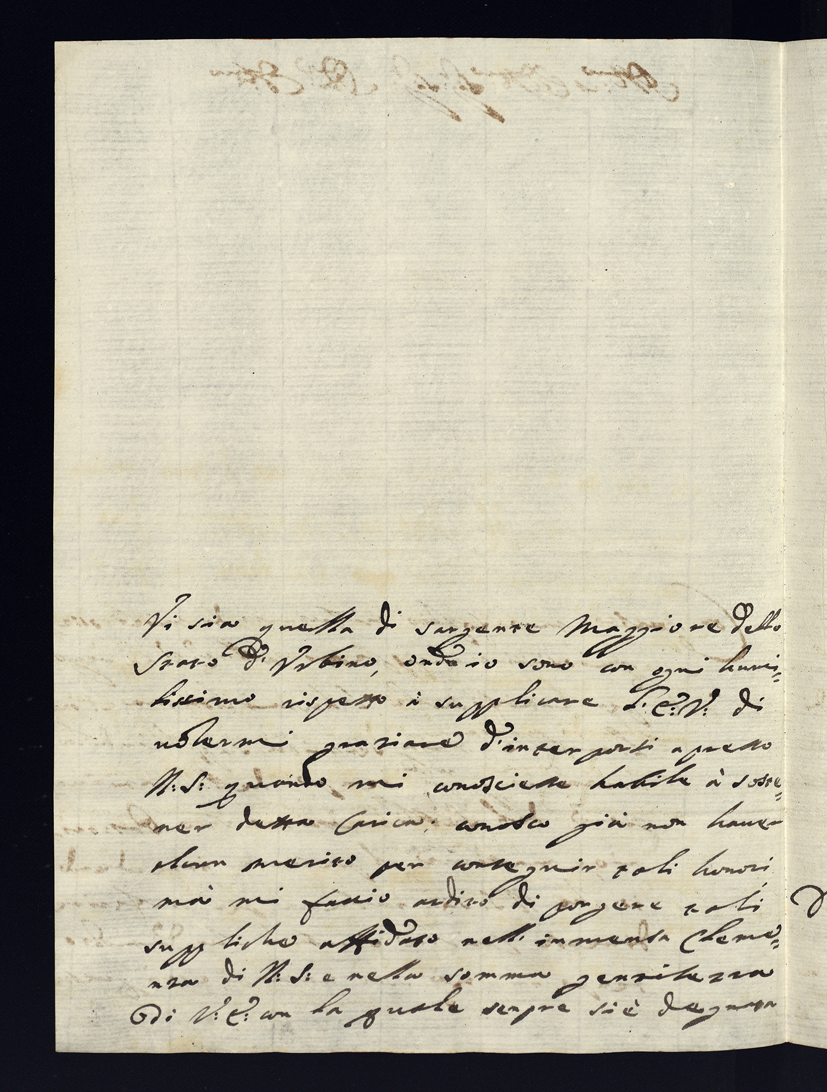 Vi sia quella di sargente Maggiore dello
Stato d'Vrbino, onde io sono con ogni humi=
lissimo rispetto à supplicare L'E: V: di
uolermi graziare d'interporsi apresso
N: S: quando mi conosciesse habile à soste=
ner detta Carica; conosco già non hauer
alcun merito per conseguir tali honori,
mà mi faccio ardito di porgere tali
suppliche affidato nell'immensa Cleme=
nza di N: S: e nella somma gentilezza
di V: E: con la quale senpre si è degnata